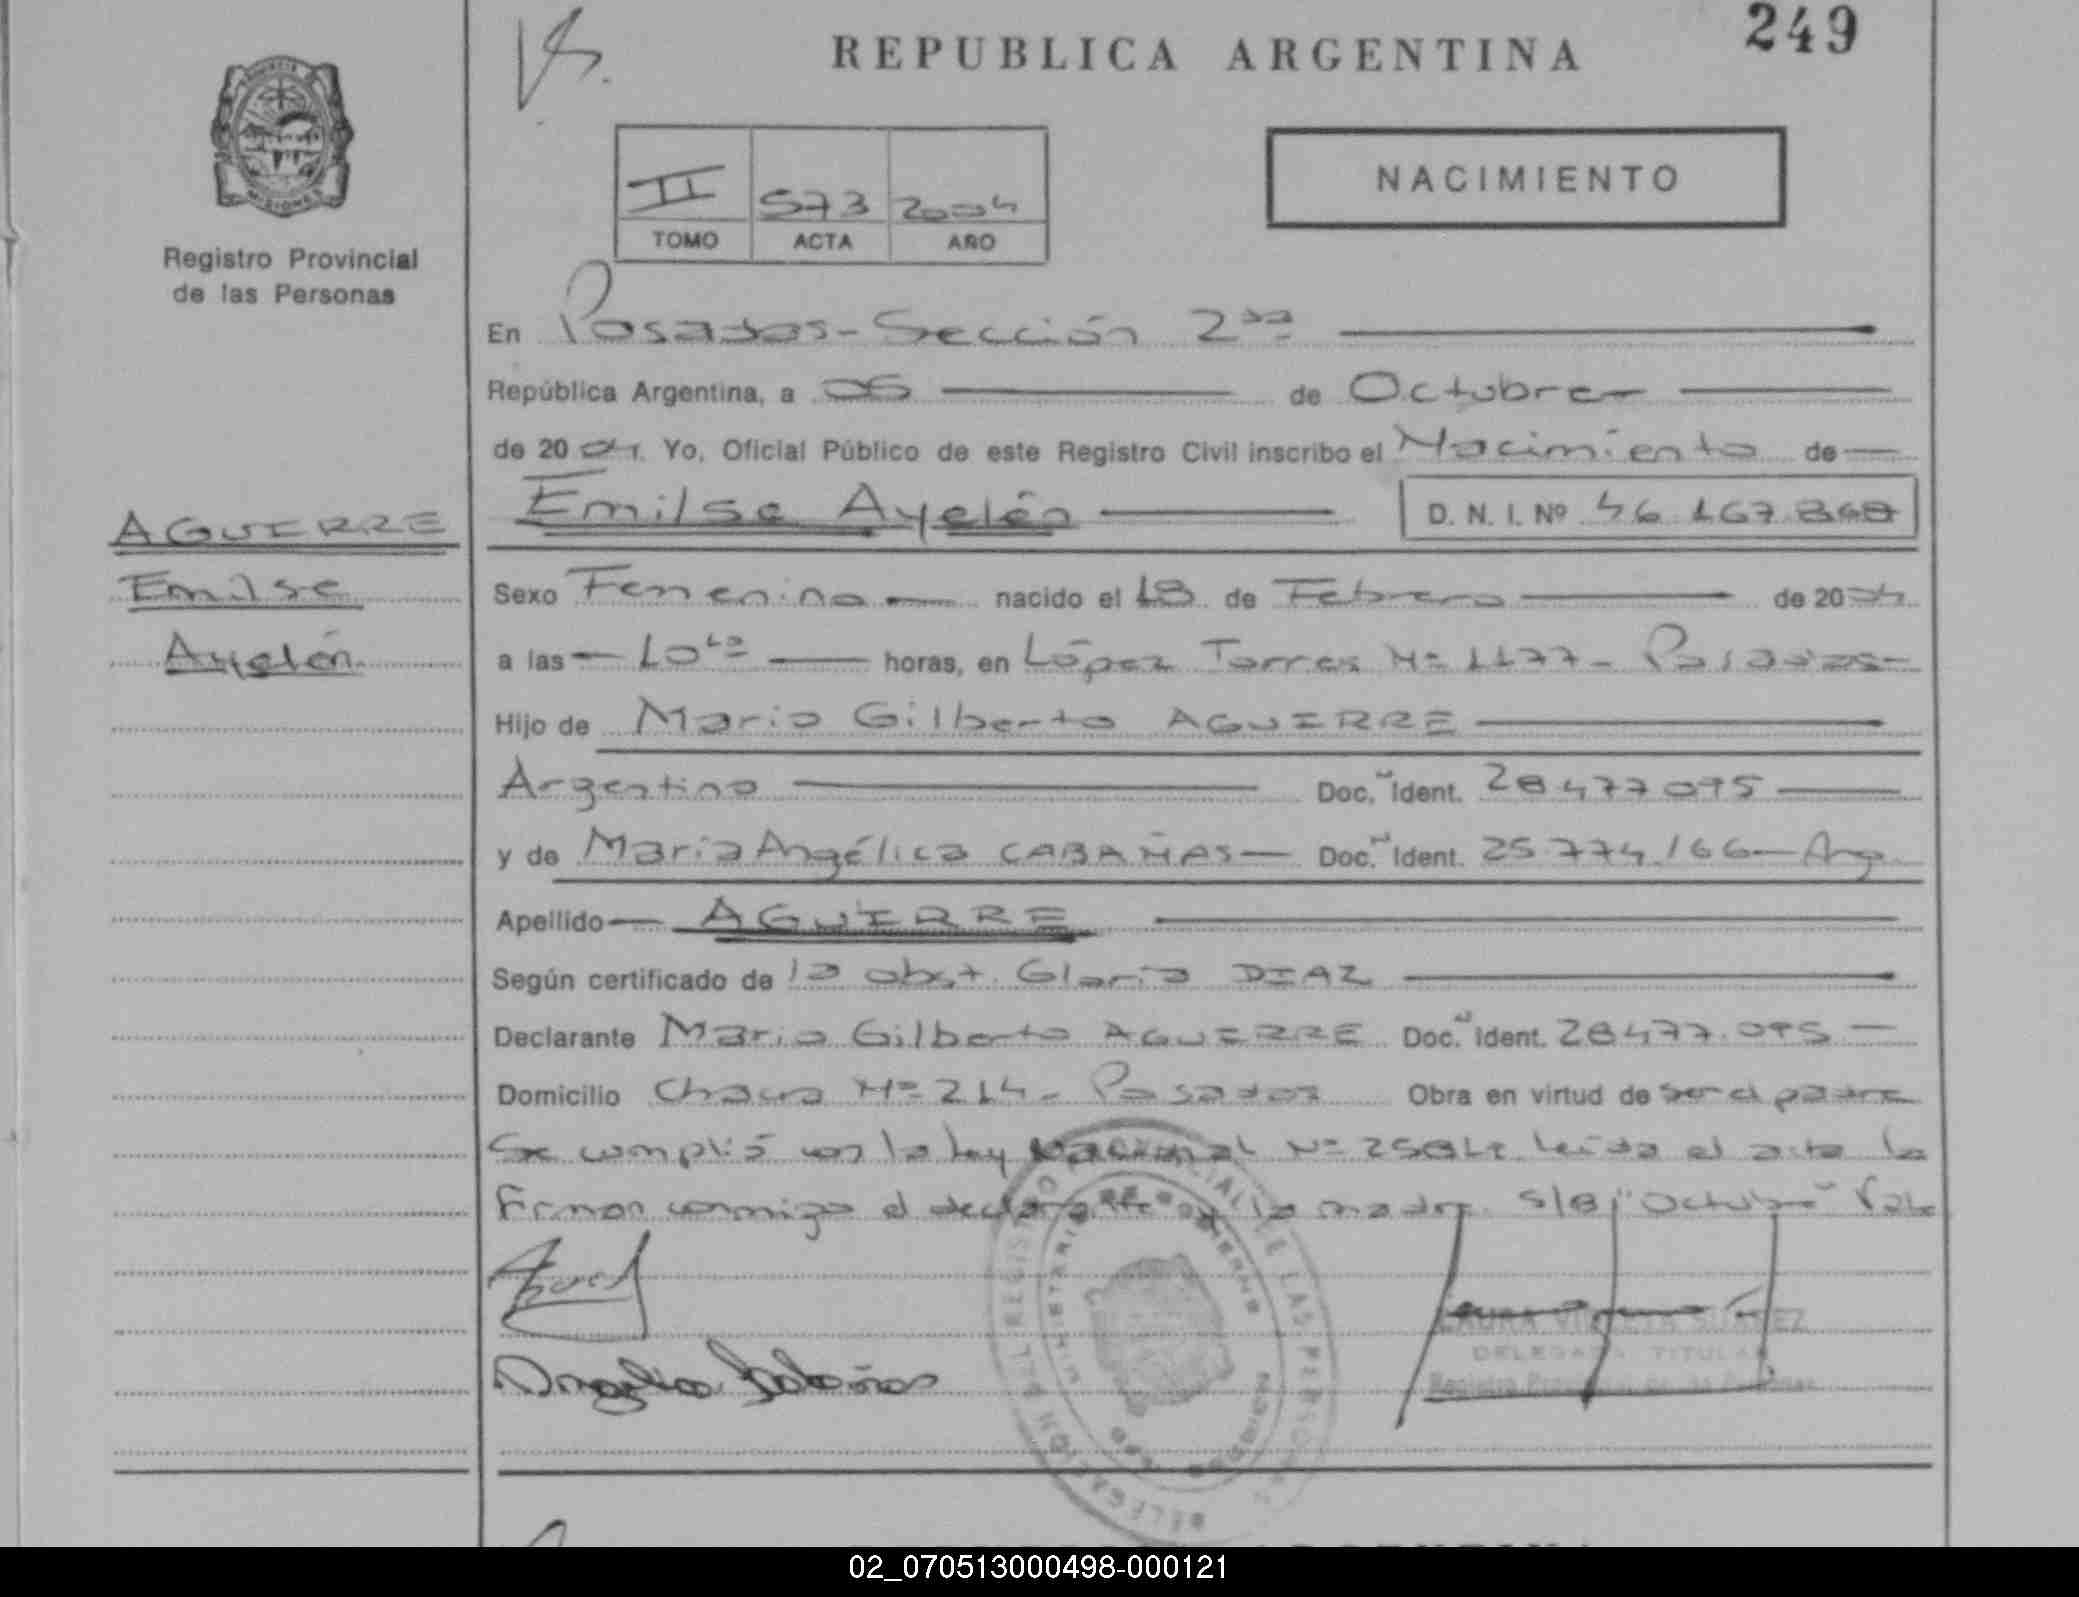 249
REPUBLICA ARGENTINA
NACIMIENTO
MISIONES
Registro Provincial
de las Personas
II 573 2004
TOMO ACTA AÑO
En Posadas - Sección 2da
República Argentina, a 06 de Octubre
de 2004. Yo, Oficial Público de este Registro Civil inscribo el Nacimiento de
Emilse Ayelén
D. N. I. Nº 46.167.868
AGUIRRE
Emilse
Ayelén
Sexo Femenino nacido el 18 de Febrero de 2004
a las 10 horas, en López Torres Nº 1177 - Posadas
Hijo de Mario Gilberto AGUIRRE
Argentino Doc. Ident. 28477095
y de María Angélica CABAÑAS Doc. Ident. 25.774.166 - Arg
Apellido AGUIRRE
Según certificado de la obst. Gloria DIAZ
Declarante Mario Gilberto AGUIRRE Doc. Ident. 28477.095
Domicilio Chacra Nº 214 - Posadas Obra en virtud de ser el padre
Se cumplió con la ley Nacional Nº leída el acta la
firman conmigo el declarante y la madre. S/B "Octubre" Vale
LAURA SUAREZ
DELEGADA TITULAR
Registro Provincial de las Personas
DELEGACIÓN DEL REGISTRO PROVINCIAL DE LAS PERSONAS
MINISTERIO DE GOBIERNO
02_070513000498-000121